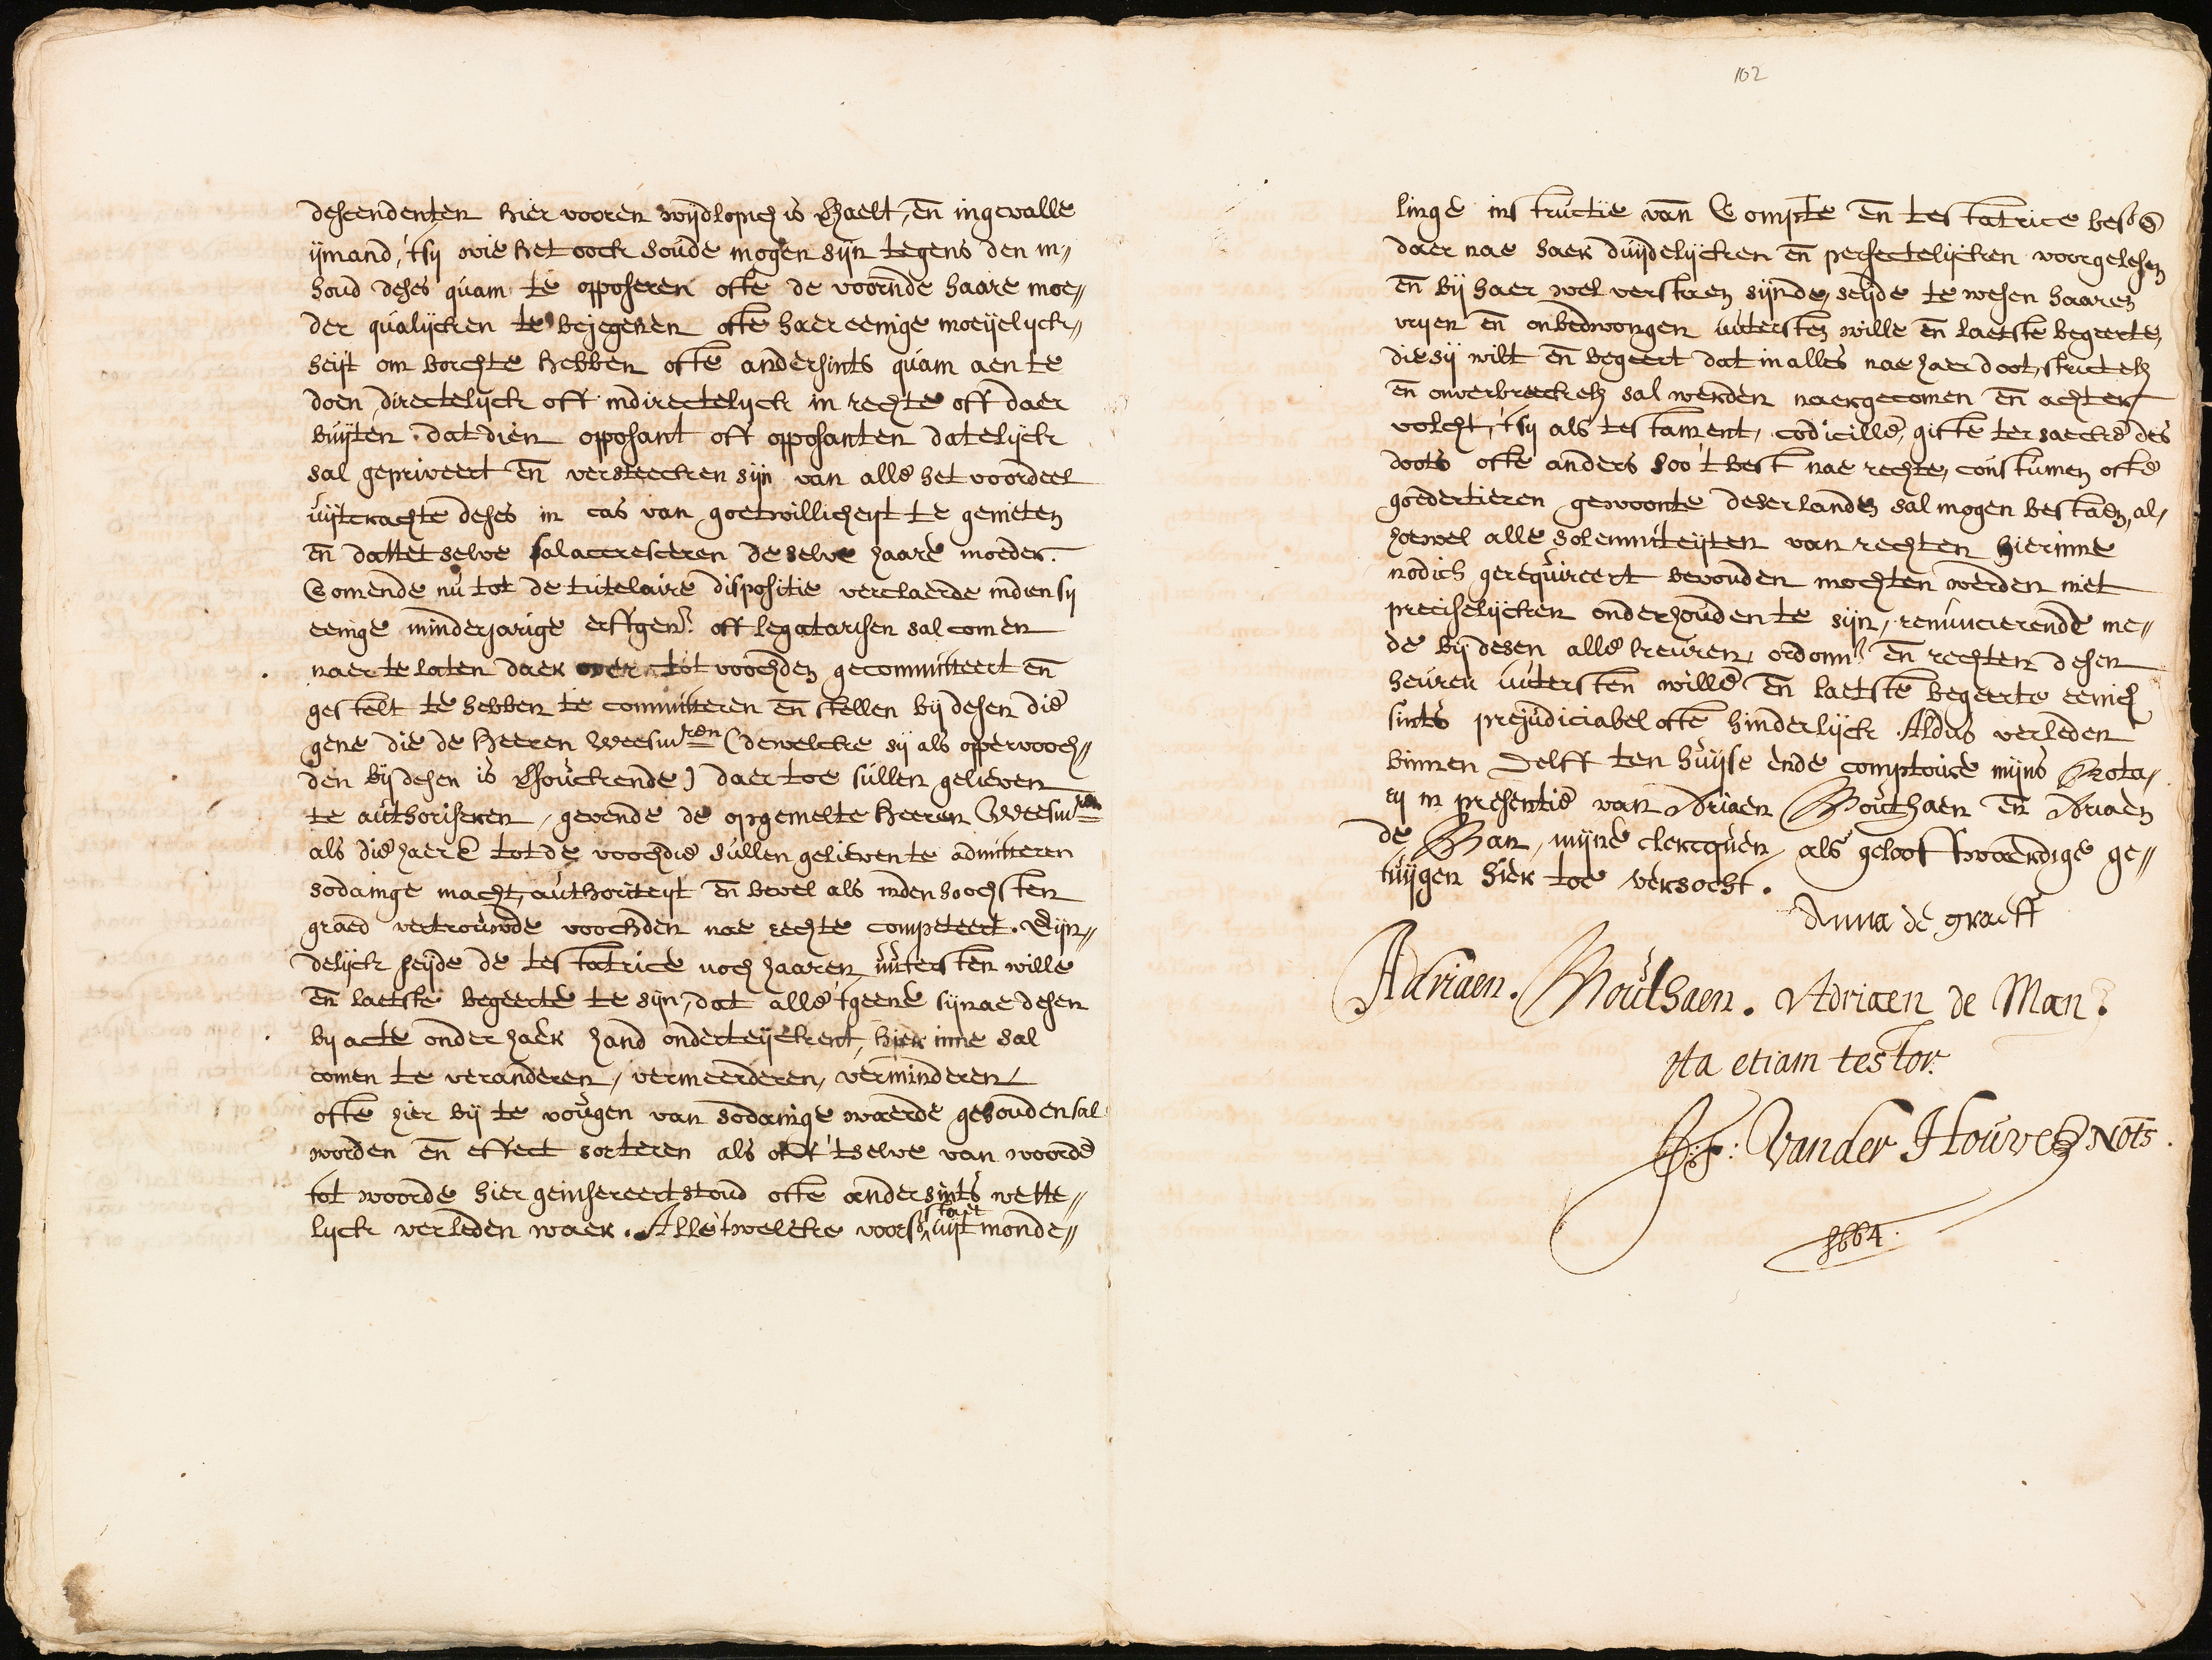 descendenten hier vooren wijdlopich is verhaelt, en ingevalle
ijmand, 'tsij wie het oock soude mogen sijn tegens den in„
houd deses quam te opposeren ofte de voornde haare moe„
der qualijcken te bejegenen ofte haer eenige moeijelijck„
heijt om borchte hebben ofte andersints quam aen te
doen, directelijck off indirectelijck in rechte off daer
buijten. dat dien opposant off opposanten datelijck
sal gepriveert en versteecken sijn van alle het voordeel
uijtcrachte deses in cas van goetwillicheijt te genieten
en dattet selve sal accresceren deselve haare moeder.
Comende nu tot de tutelaire dispositie verclaerde indien sij
eenige minderjarige erffgen. off legatarisen sal comen
naer te laten daer over tot voochden gecommitteert en
gestelt te hebben te committeren en stellen bij desen die
gene die de Heeren Weesmren (dewelcke sij als oppervooch„
den bij desen is versouckende) daer toe sullen gelieven
te authoriseren, gevende de opgemelte Heeren Weesmren
als die haer E tot de voochdie sullen gelieven te admitteren
sodainge macht, authoriteijt en bevel als inden hoochsten
graed vertrouwde voochden nae rechte competeert. Eijn„
delijck seijde de testatrice noch haaren uijtersten wille
en laetste begeerte te sijn, dat alle 'tgeene sij nae desen
bij acte onder haer hand onderteijckent, hier inne sal
comen te veranderen, vermeerderen, verminderen,
ofte hier bij te vougen van sodanige waerde gehouden sal
worden en effect sorteren als oft 'tselve van woorde
tot woorde hier geinsereert stond ofte andersints wette„
lijck verleden waer. Alle 'twelcke voors. uijt monde„
102
linge instructie van Compte en testatrice
daer nae haer duijdelijcken en perfectelijcken voorgelesen
en bij haer wel verstaen sijnde, seijde te wesen haaren
vrijen en onbedwongen uutersten wille en laetste begeerte,
die sij wilt en begeert dat in alles nae haer doot, strictelijk
en onverbreeckelijk sal werden naergecomen en achter„
volcht, 'tsij als testament, codicille, gifte ter saecke des
doots ofte anders soo 't best nae rechte, constumen ofte
goedertieren gewoonte deser landen sal mogen bestaen, al„
hoewel alle solemniteijten van rechten hierinne
nodich gerequireert bevonden mochten werden niet
preciselijcken onderhouden te sijn, renuncierende me„
de bij desen alle keuren, ordonn. en rechten desen
heuren uutersten wille en laetste begeerte eenich
sints prejudiciabel ofte hinderlijck. Aldus verleden
binnen Delff ten huijse ende comptoire mijns Nota„
rij in presentie van Adriaen Mouthaen en Adriaen
de Man, mijne clercquen, als geloofwaerdige ge„
tuijgen hier toe versocht.
Anna de graeff
Adriaen. Mouthaen. Adriaen de Man.
Ita etiam testor.
Vander Houve Nots.
1664.